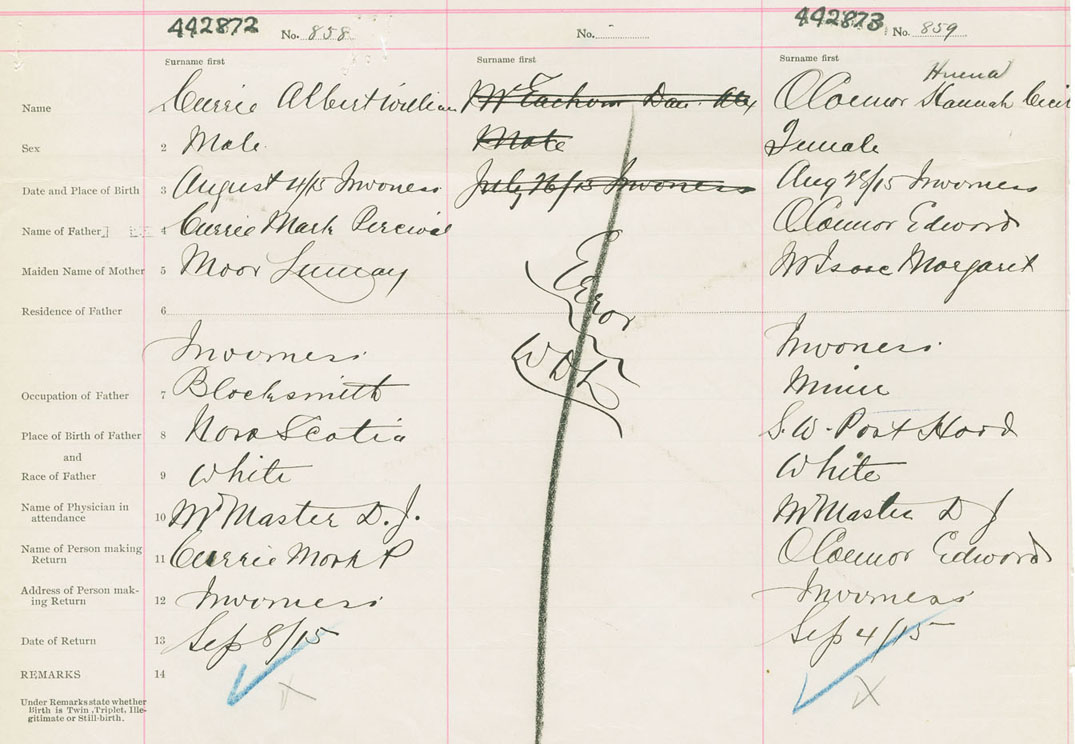 442872 No. 858 No. 442873 No. 859
Surname first Surname first Surname first
Name Currie Albert William McEachern Dan Alex O'Connor Hannah Cecil
Sex 2 Male Male Female
Date and Place of Birth 3 August 4/15 Inverness July 26/15 Inverness Aug 28/15 Inverness
Name of Father 4 Currie Mark Percival O'Connor Edward
Maiden Name of Mother 5 Moor McIsaac Margaret
Error
Residence of Father 6
Inverness Inverness
Occupation of Father 7 Blacksmith Miner
Place of Birth of Father 8 Nova Scotia S.W. Port Hood
and
Race of Father 9 White White
Name of Physician in
attendance 10 McMaster D.J. McMaster D J
Name of Person making
Return 11 Currie Mark P O'Connor Edward
Address of Person mak-
ing Return 12 Inverness Inverness
Date of Return 13 Sep 8/15 Sep 4/15
REMARKS 14
Under Remarks state whether
Birth is Twin, Triplet, Ille-
gitimate or Still-birth.